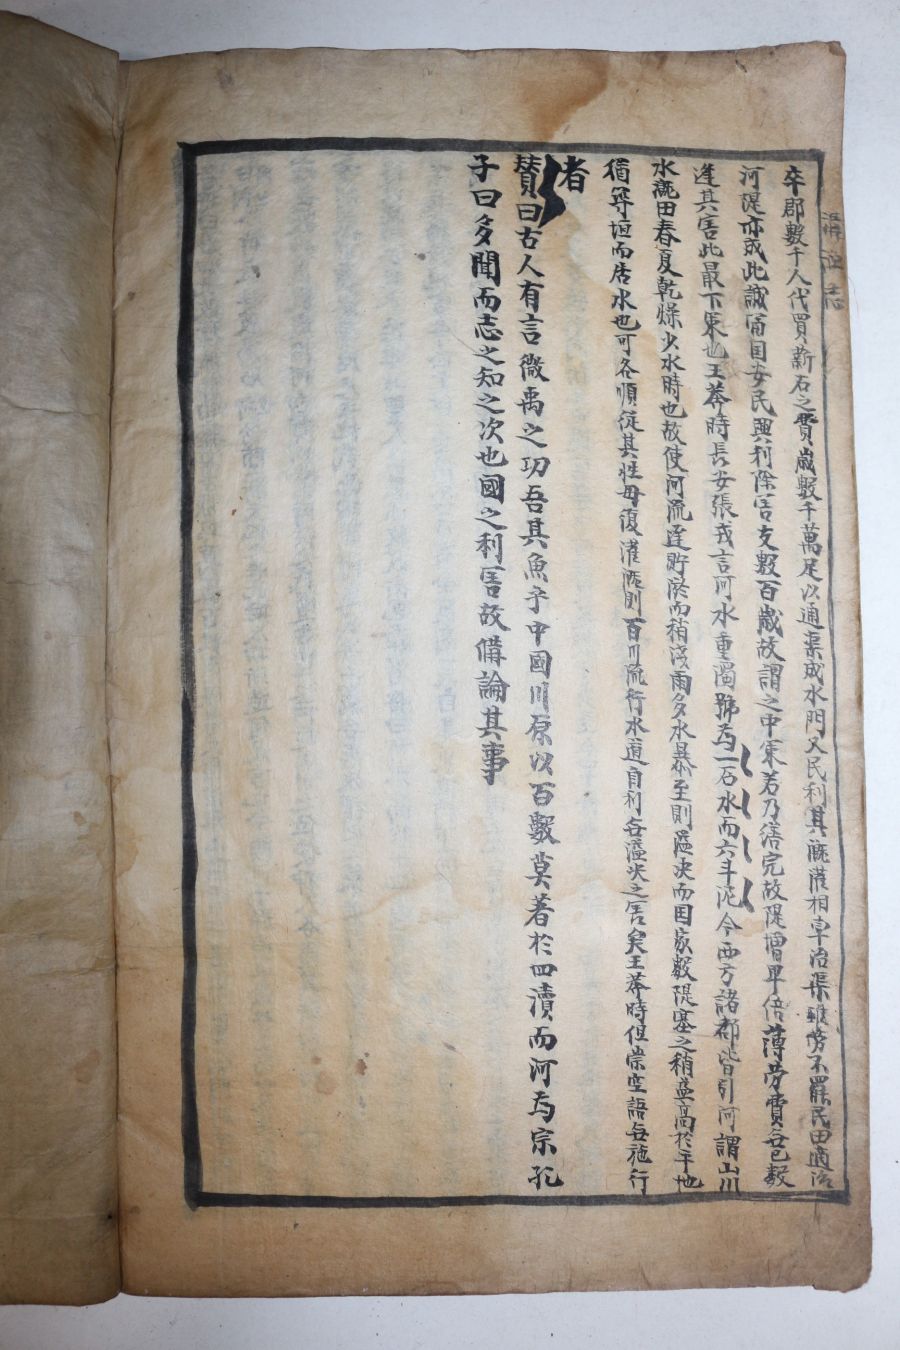 溝洫志
卒郡數千人代買薪石之費歲數千萬足以通渠成水門又民利其溉灌相率治渠雖勞不罷民田適治
河隄亦成此誠富国安民興利除害支數百歲故謂之中策若乃繕完故隄增卑倍薄勞費無已數
逢其害此最下策也王莽時長安張戎言河水重濁號為一石水而六斗泥今西方諸郡皆引河謂山川
水溉田春夏乾燥少水時也故使河流遲貯淤而稍淺雨多水暴至則溢决而国家數隄塞之稍益高於平地
猶築垣而居水也可各順從其性毋復灌溉則百川流行水道自利無溢决之害矣王莽時但崇空語無施行
者
贊曰古人有言微禹之功吾其魚乎中國川原以百數莫著於四瀆而河為宗孔
子曰多聞而志之知之次也國之利害故備論其事